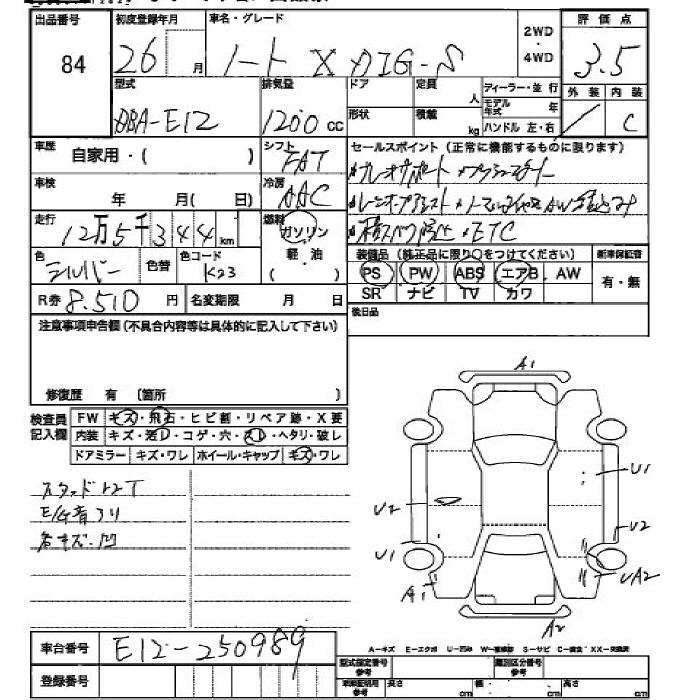 出品番号 初度登録年月 車名・グレード 2WD・4WD 評価点
84 26 月 ノート X DIG-S 3.5
外装 内装
/ C
型式 排気量 ドア 定員 人 ディーラー・並行
DBA-E12 1200 cc 形状 積載 kg モデル年式 年
ハンドル 左・右
車歴 自家用・( ) シフト FAT
セールスポイント (正常に機能するものに限ります)
車検 年 月( 日) 冷房 AAC
走行 12万5千344km 燃料 ガソリン 軽・油 ( )
・横スベリ防止 ・ETC
色 シルバー 色替 色コード K23
装備品 (純正品に限り○をつけてください) 新車保証書
PS PW ABS エアB AW 有・無
SR ナビ TV カワ
R券 8.510 円 名変期限 月 日
後日品
注意事項申告欄(不具合内容等は具体的に記入して下さい)
修復歴 有 〔箇所 〕
検査員記入欄 FW キズ・飛石・ヒビ割・リペア跡・X要
内装 キズ・若干ヨゴレ・コゲ・穴・スレ・ヘタリ・破レ
ドアミラー キズ・ワレ ホイール・キャップ キズ・ワレ
E/G音アリ
各キズ・凹
A1
U1
U2
U2
U1
UA2
A1
A2
車台番号 E12-250989
登録番号
A-キズ E-エクボ U-凹み W-補修跡 S-サビ C-腐食 XX-交換済
型式指定番号 参考 類別区分番号 参考
長さ cm 幅 cm 高さ cm